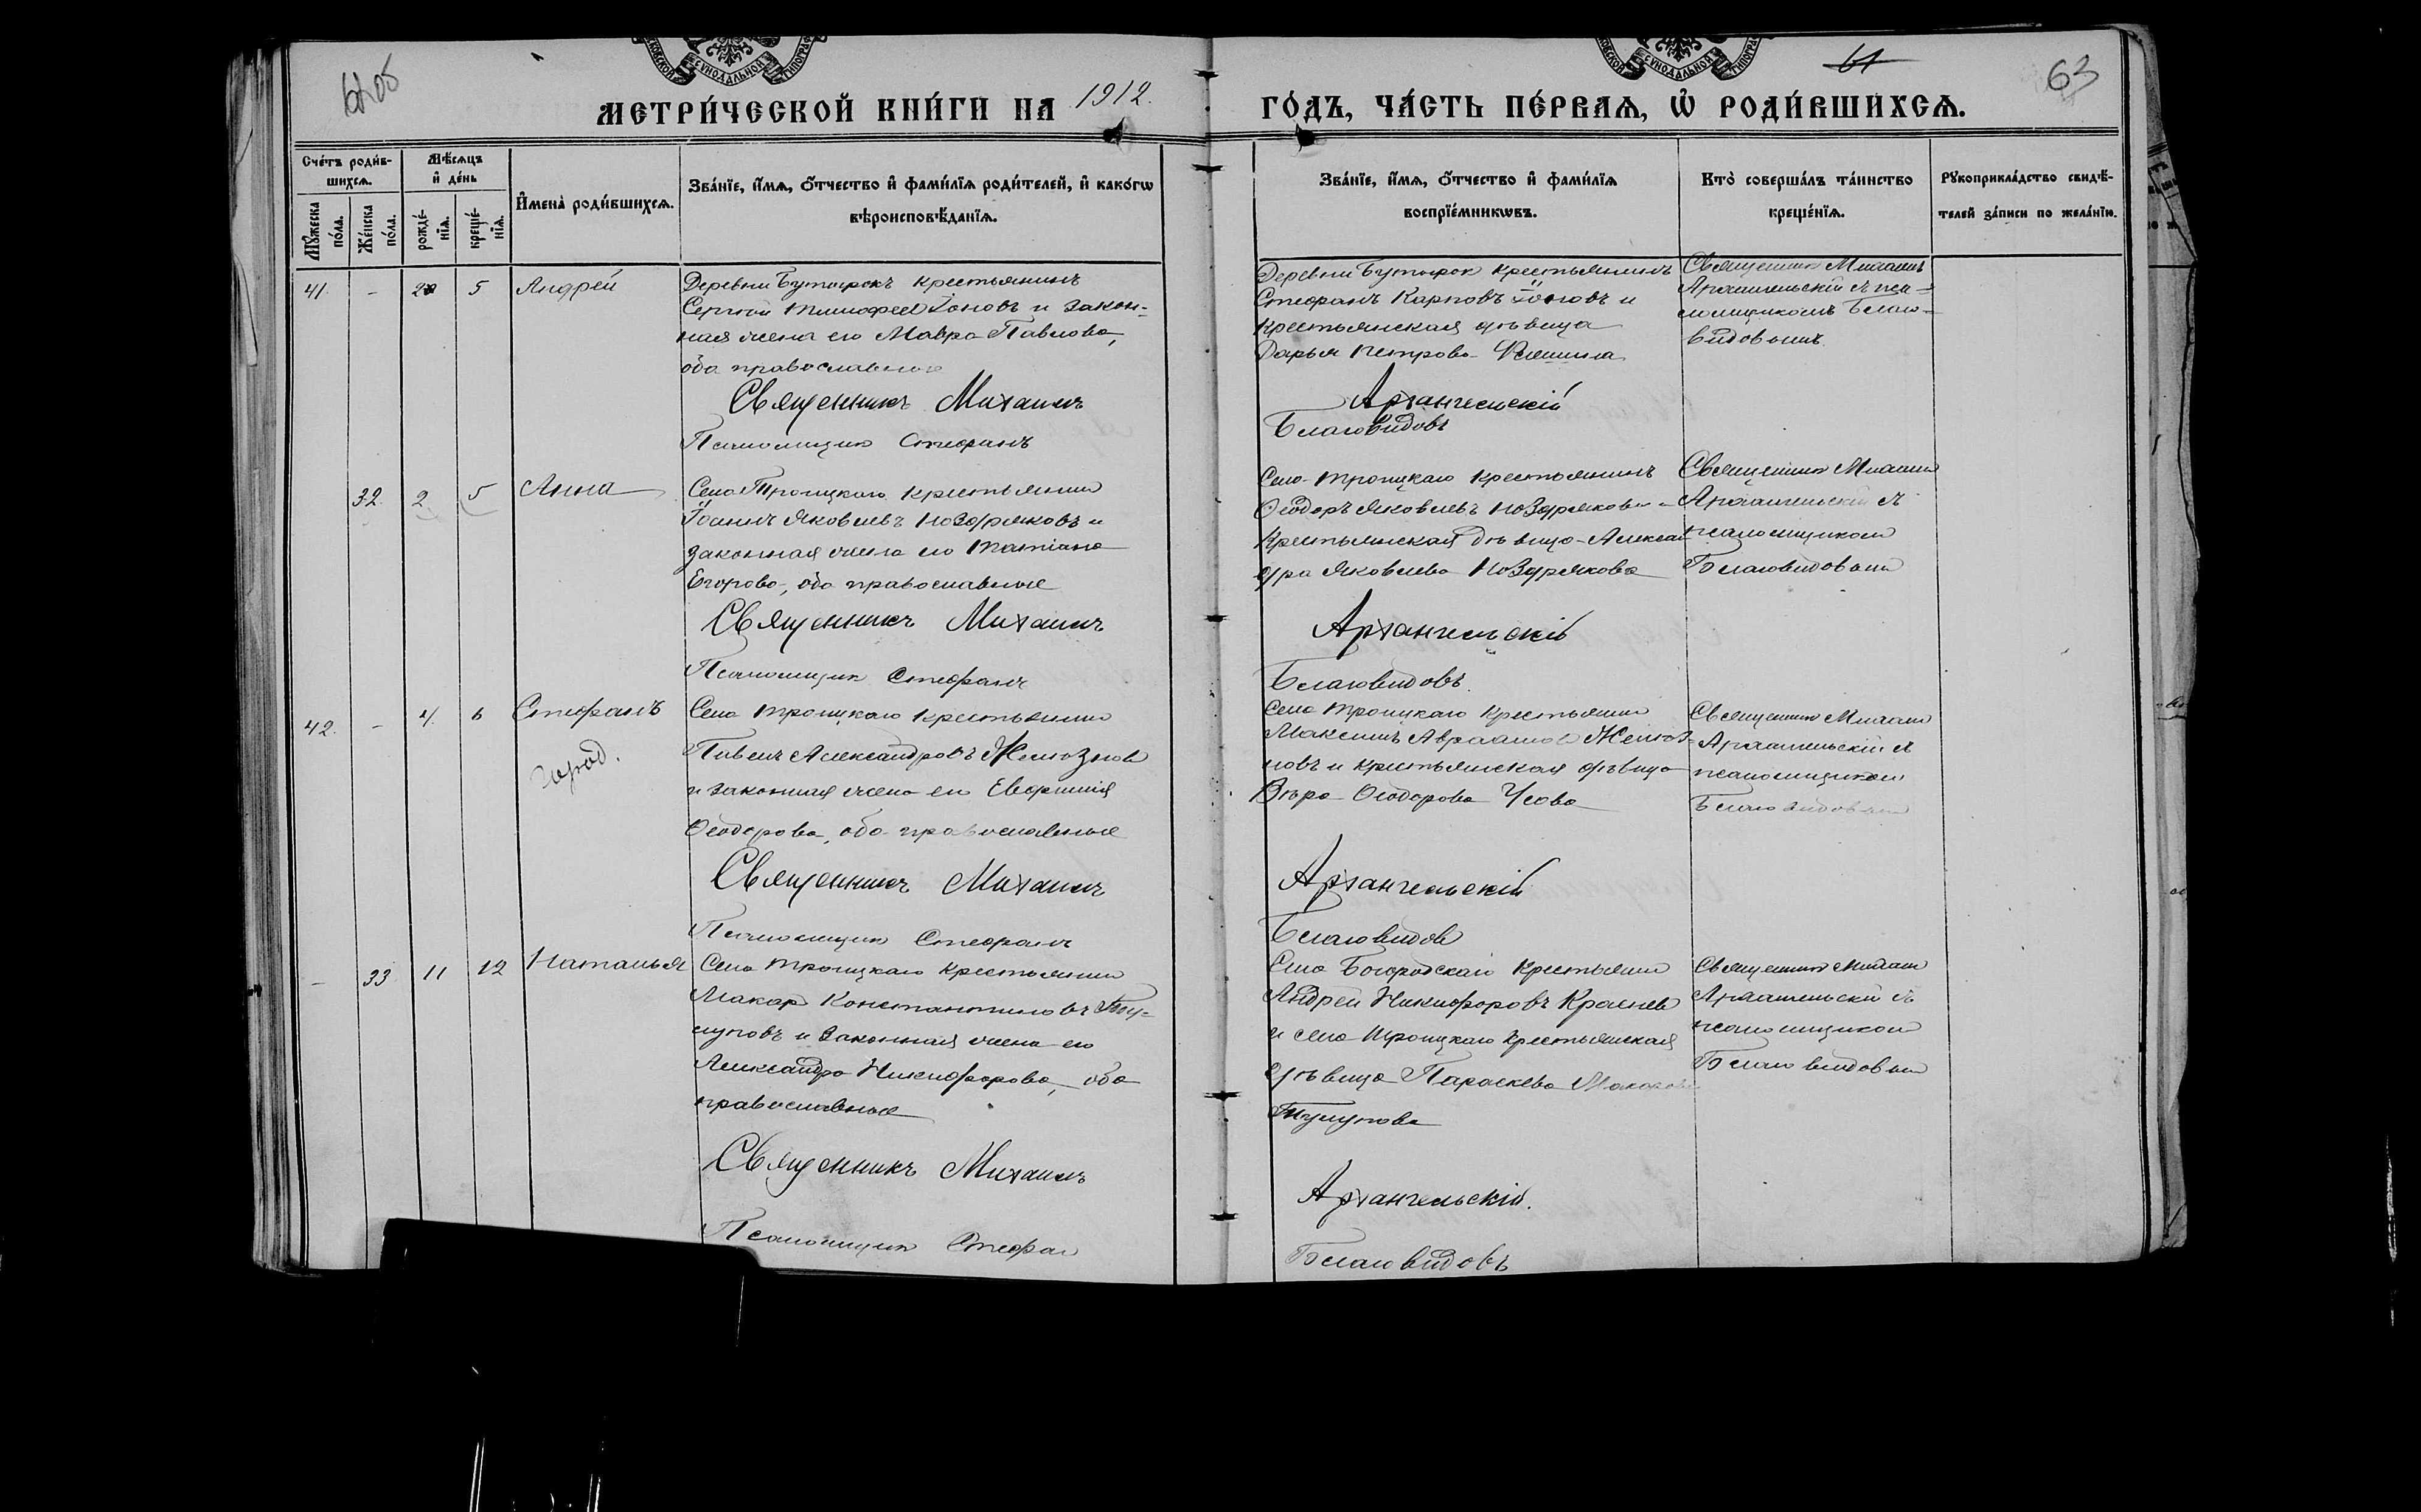 61об
61
63
МЕТРИ́ЧЕСКОЙ КНИ́ГИ НА 1912. ГО́ДЪ, ЧА́СТЬ ПЕ́РВАѦ, Ѡ҆ РОДИ́ВШИХСѦ.
Сче́тъ роди́в-
шихсѧ.
Мѣ́сѧцъ
и҆ де́нь
Мꙋ́жеска
по́ла.
Же́нска
по́ла.
рожде́-
нїѧ.
креще́-
нїѧ.
И҆мена̀ роди́вшихсѧ.
Зва́нїе, и҆́мѧ, о҆́тчество и҆ фами́лїѧ роди́телей, и҆ како́гѡ
вѣроисповѣ́данїѧ.
Зва́нїе, и҆́мѧ, о҆́тчество и҆ фами́лїѧ
воспрїе́мникѡвъ.
Кто̀ соверша́лъ та́инство
креще́нїѧ.
Рꙋкоприкла́дство свидѣ́-
телей за́писи по жела́нїю.
41. - 2 5 Андрей
Деревни Бутырокъ крестьянинъ
Сергѣй Тимофеев Іоновъ и закон-
ная жена его Мавра Павлова,
оба православные
Священникъ Михаилъ
Псаломщик Стефанъ
Деревни Бутырок крестьянинъ
Стефанъ Карповъ Іоновъ и
крестьянская дѣвица
Дарья Петрова
Архангельскій
Благовидовъ
Священник Михаилъ
Архангельскій съ пса-
ломщикомъ Благо-
видовымъ
32. 2 5 Анна
Села Троицкаго крестьянин
Іоаннъ Яковлевъ Ноздряковъ и
законная жена его Татіана
Егорова, оба православные
Священникъ Михаилъ
Псаломщик Стефанъ
Села Троицкаго крестьянинъ
Ѳеодоръ Яковлевъ Ноздряковъ и
крестьянская дѣвица Алексан
дра Яковлева Ноздрякова
Архангельскій
Благовидовъ.
Священник Михаил
Архангельскій съ
псаломщиком
Благовидовым
42. - 4. 6 Стефанъ
город.
Села Троицкаго крестьянин
Павелъ Александровъ Желѣзнов
и законная жена его Евфимія
Ѳеодорова, оба православные
Священникъ Михаилъ
Псаломщик Стефанъ
Села Троицкаго крестьянин
Максимъ Авраамов Желѣз-
новъ и крестьянская дѣвица
Вѣра Ѳеодорова Усова
Архангельскій
Благовидов
Священник Михаил
Архангельскій съ
псаломщиком
Благовидовым
- 33 11 12 Наталья
Села Троицкаго крестьянин
Макар Константиновъ Ту-
луповъ и законная жена его
Александра Никифорова, оба
православные
Священникъ Михаилъ
Псаломщик Стефан
Села Богородскаго крестьянин
Андрей Никифоровъ Краснев
и села Троицкаго крестьянская
дѣвица Параскева Макарова
Тулупова
Архангельскій.
Благовидовъ
Священник Михаил
Архангельскій съ
псаломщиком
Благовидовым